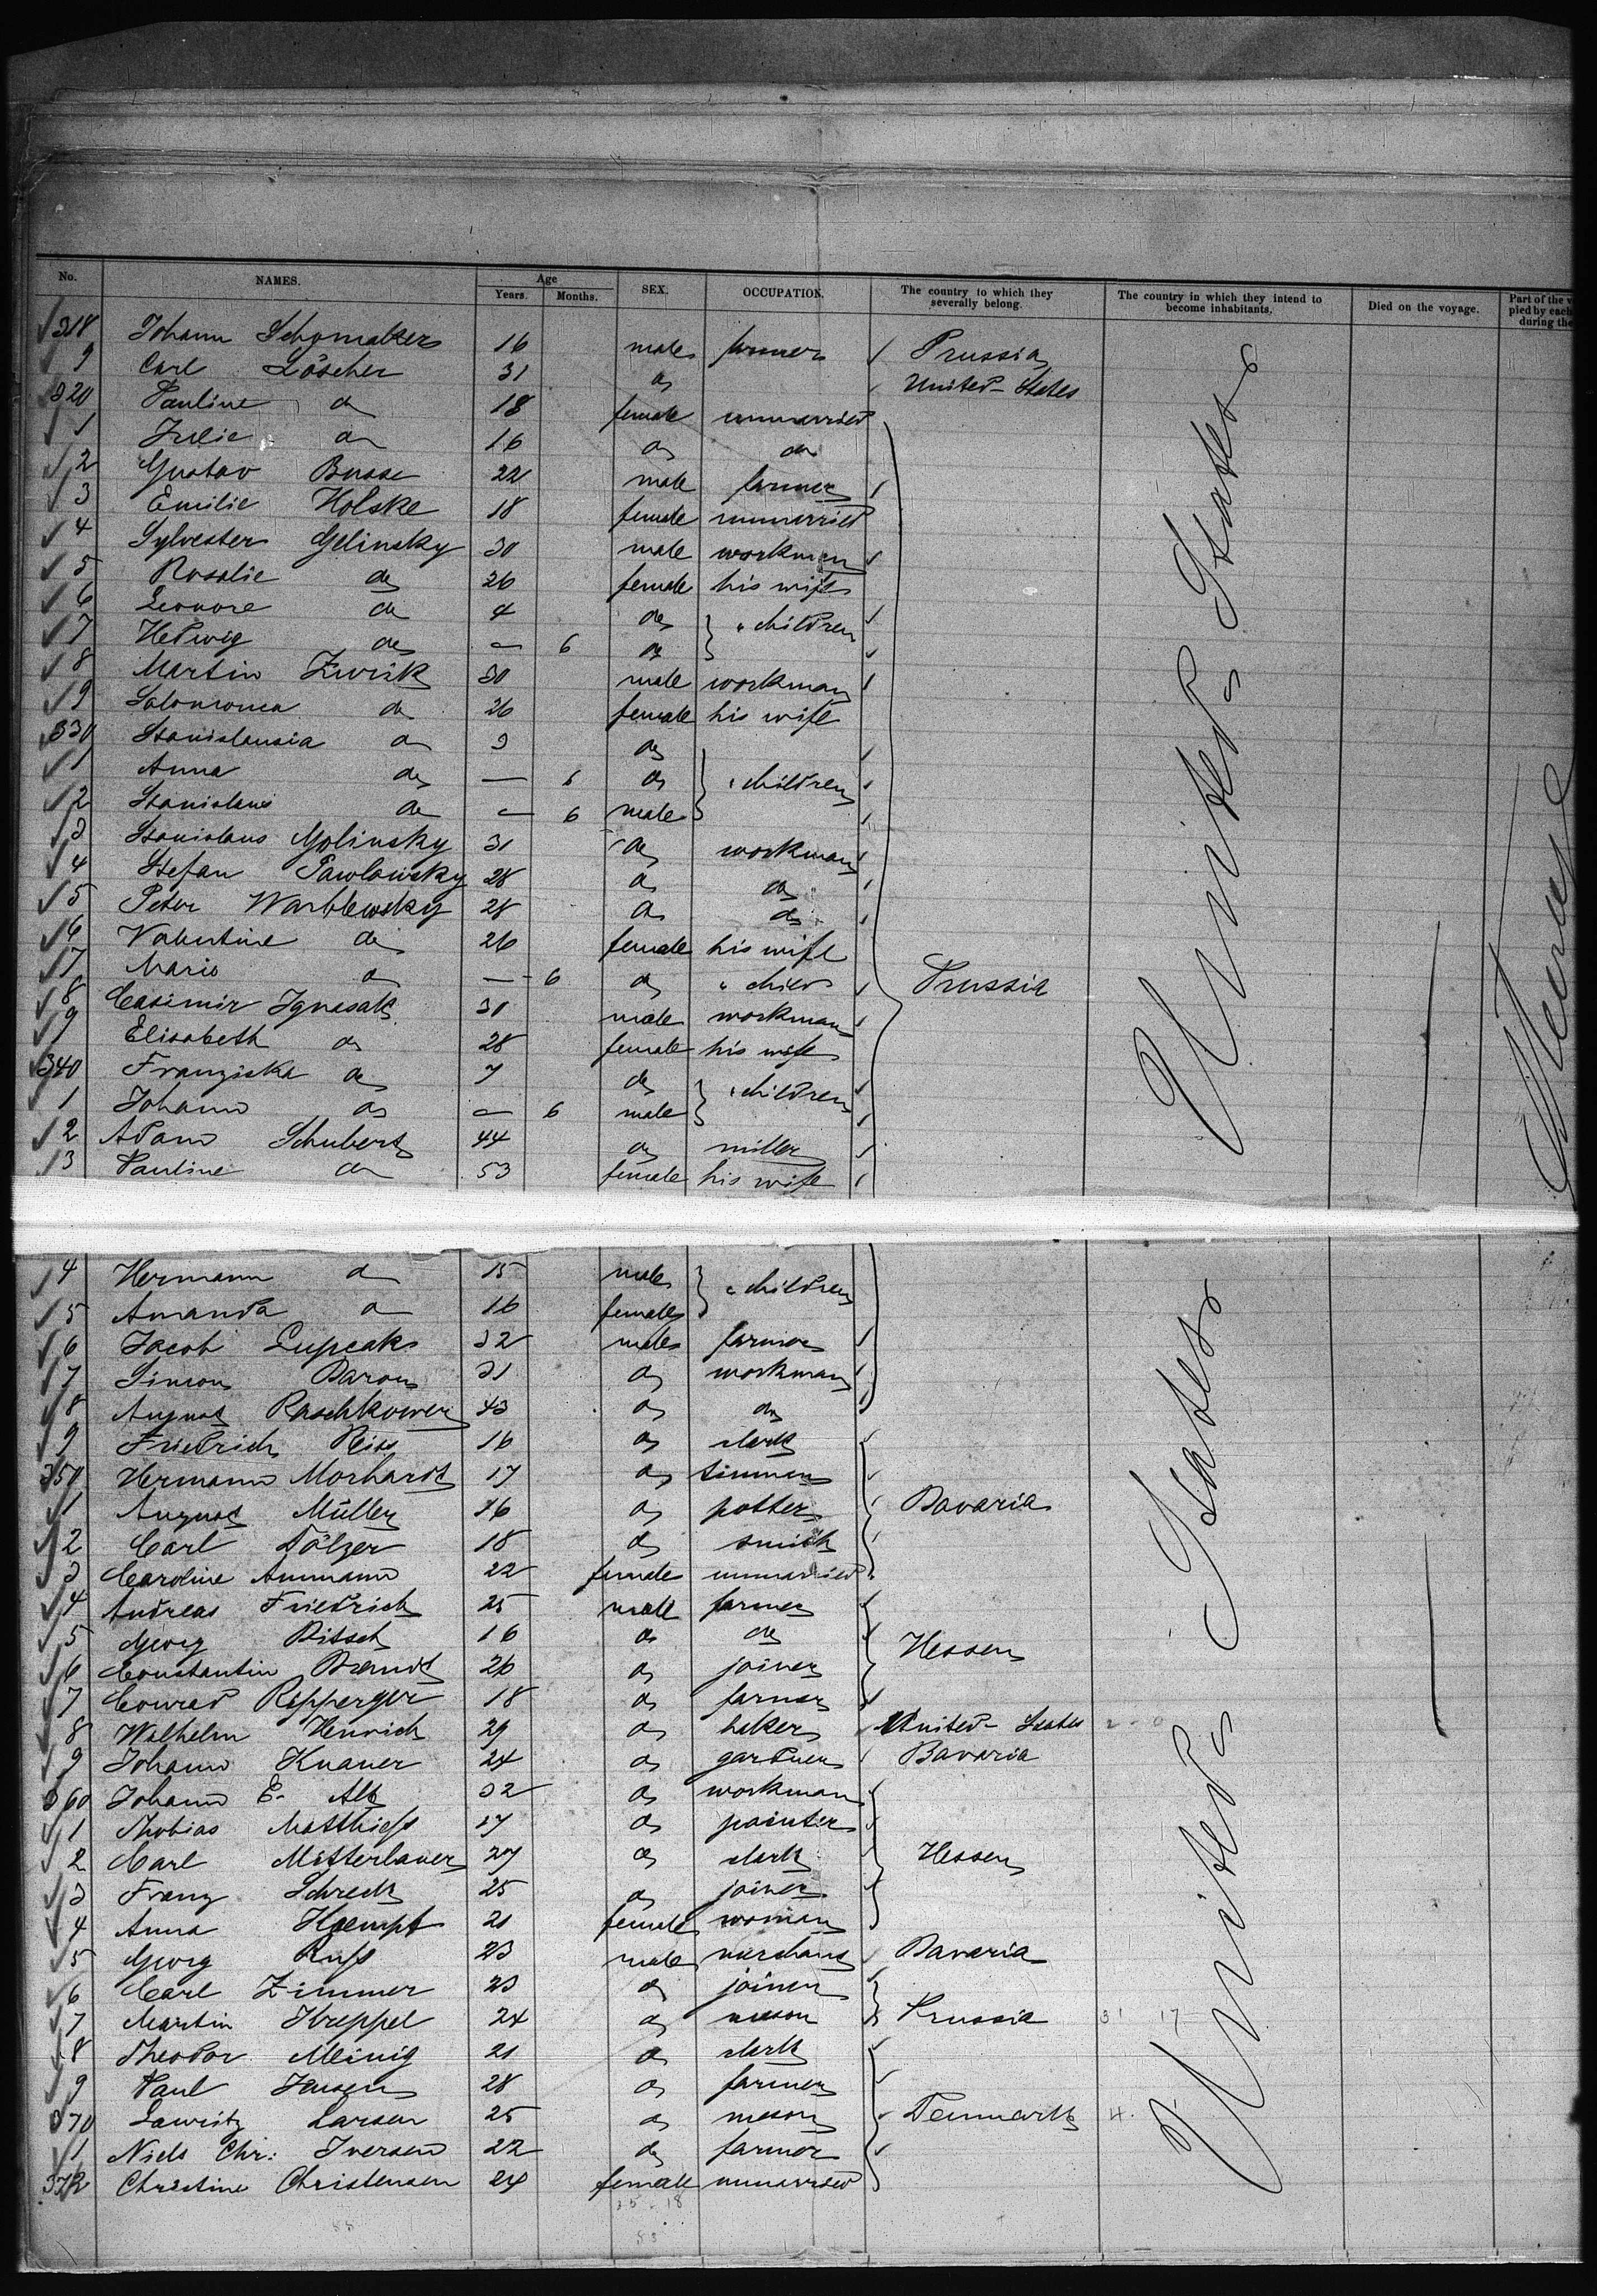 No. NAMES. Age Years. Months. SEX. OCCUPATION. The country to which they severally belong. The country in which they intend to become inhabitants. Died on the voyage. Part of the v pied by each during the
318 Johann Schomaker 16 male farmer Prussia
9 Carl Löscher 31 do United States
320 Pauline do 18 female unmarried
1 Julie do 16 do do
2 Gustav Busse 22 male farmer
3 Emilie Holske 18 female unmarried
4 Sylvester Gelinsky 30 male workman
5 Rosalie do 26 female his wife
6 Leonore do 4 do " children
7 Hedwig do — 6 do
8 Martin Zwick 30 male workman
9 Salomonea do 26 female his wife
330 Stanislausia do 9 do
1 Anna do — 6 do " children
2 Stanislaus do — 6 male
3 Stanislaus Golinsky 31 do workman
4 Stefan Pawlowsky 28 do do
5 Peter Warblewsky 28 do do
6 Valentine do 26 female his wife
7 Marie do — 6 do " child Prussia
8 Casimir Ignasak 30 male workman
9 Elisabeth do 28 female his wife
340 Franziska do 7 do " children
1 Johann do — 6 male
2 Adam Schubert 44 do miller
3 Pauline do 53 female his wife
United States
4 Hermann do 15 male " children
5 Amanda do 16 female
6 Jacob Lupcak 32 male farmer
7 Simon Baron 31 do workman
8 August Raschkower 43 do do
9 Friedrich Reiss 16 do clerk
350 Hermann Morhardt 17 do
1 August Müller 16 do potter Bavaria
2 Carl Dölzer 18 do smith
3 Caroline Ammann 22 female unmarried
4 Andreas Friedrich 25 male farmer
5 Georg Bitsch 16 do do Hessen
6 Constantin Brandt 26 do joiner
7 Conrad Ripperger 18 do farmer
8 Wilhelm Henrich 29 do baker United States 2-0
9 Johann Knauer 24 do gardner Bavaria
360 Johann E. Alt 32 do workman
1 Thobias Matthiess 27 do painter
2 Carl Mitterlauer 27 do clerk Hessen
3 Franz Schreck 25 do joiner
4 Anna Kaempf 21 female woman
5 Georg Russ 23 male merchant Bavaria
6 Carl Zimmer 23 do joiner
7 Martin Kreppel 24 do meson Prussia 3 17
8 Theodor Meinig 21 do clerk
9 Paul Jensen 28 do farmer
370 Lauritz Larsen 25 do meson Denmark 4
1 Niels Chr: Iversen 22 do farmer
372 Christine Christensen 24 female unmarried
United States